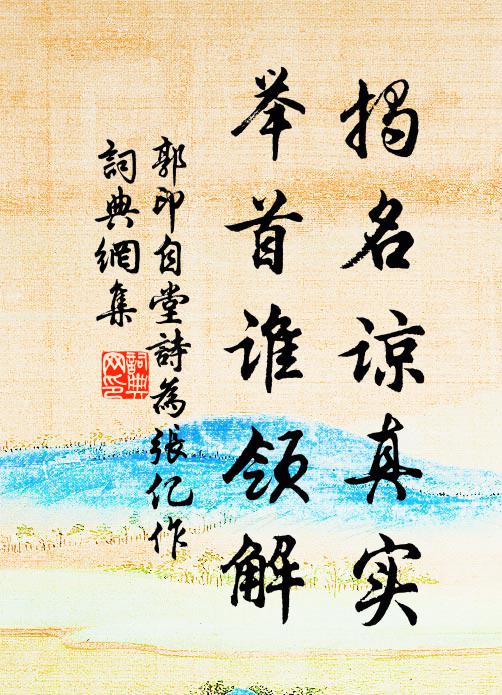 揭名谅真实
举首谁领解
郭印自堂詩為張亿作
詞典網集
詞典網印